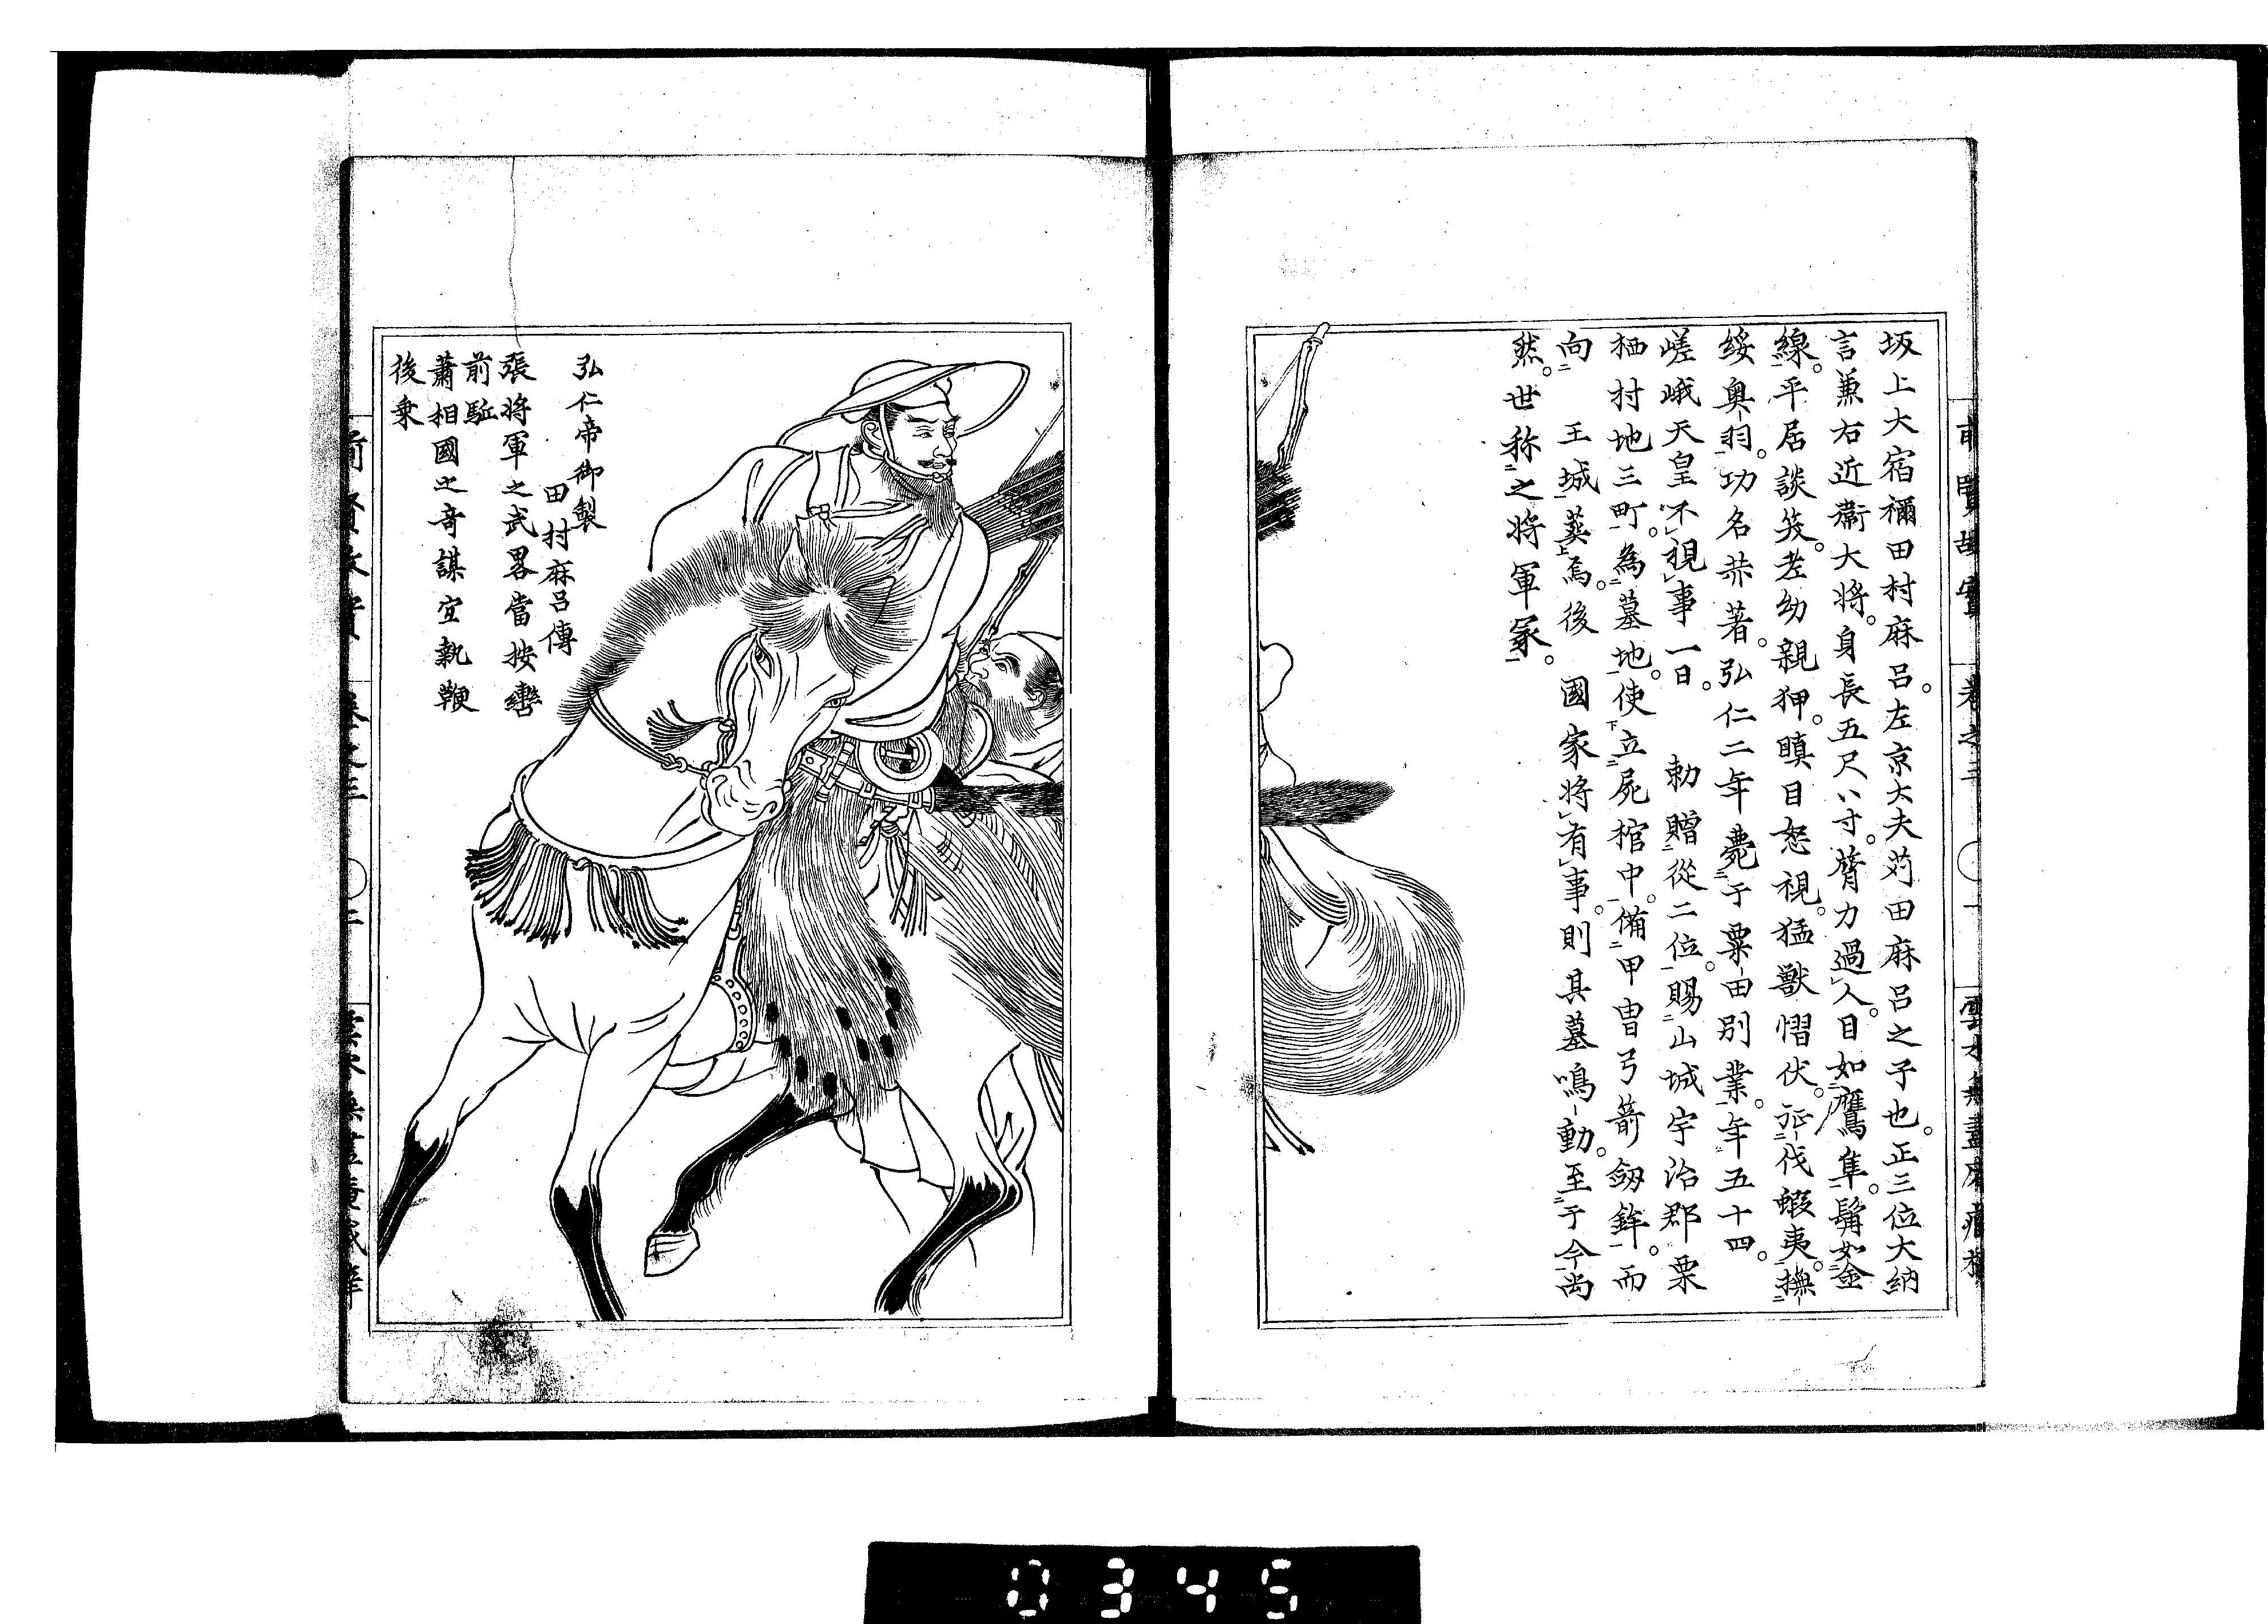 坂上大宿禰田村麻呂。左京大夫苅田麻呂之子也。正三位大納
言兼右近衞大將。身長五尺八寸。膂力過人。目如鷹隼。鬚如金
線。平居談笑。老幼親狎。瞋目怒視。猛獸慴伏。征伐蝦夷。撫
綏奥羽。功名共著。弘仁二年薨于粟田別業。年五十四。
嵯峨天皇不視事一日。 勅贈從二位。賜山城宇治郡栗
栖村地三町。為墓地。使立屍棺中。備甲冑弓箭劔鉾。而
向 王城葬焉。後 國家將有事。則其墓鳴動。至于今尚
然。世称之將軍冢。
前賢故實 卷之三 一
弘仁帝御製
田村麻呂傳
張将軍之武畧當按轡
前駈
蕭相國之奇謀宜執鞭
後乗
0345